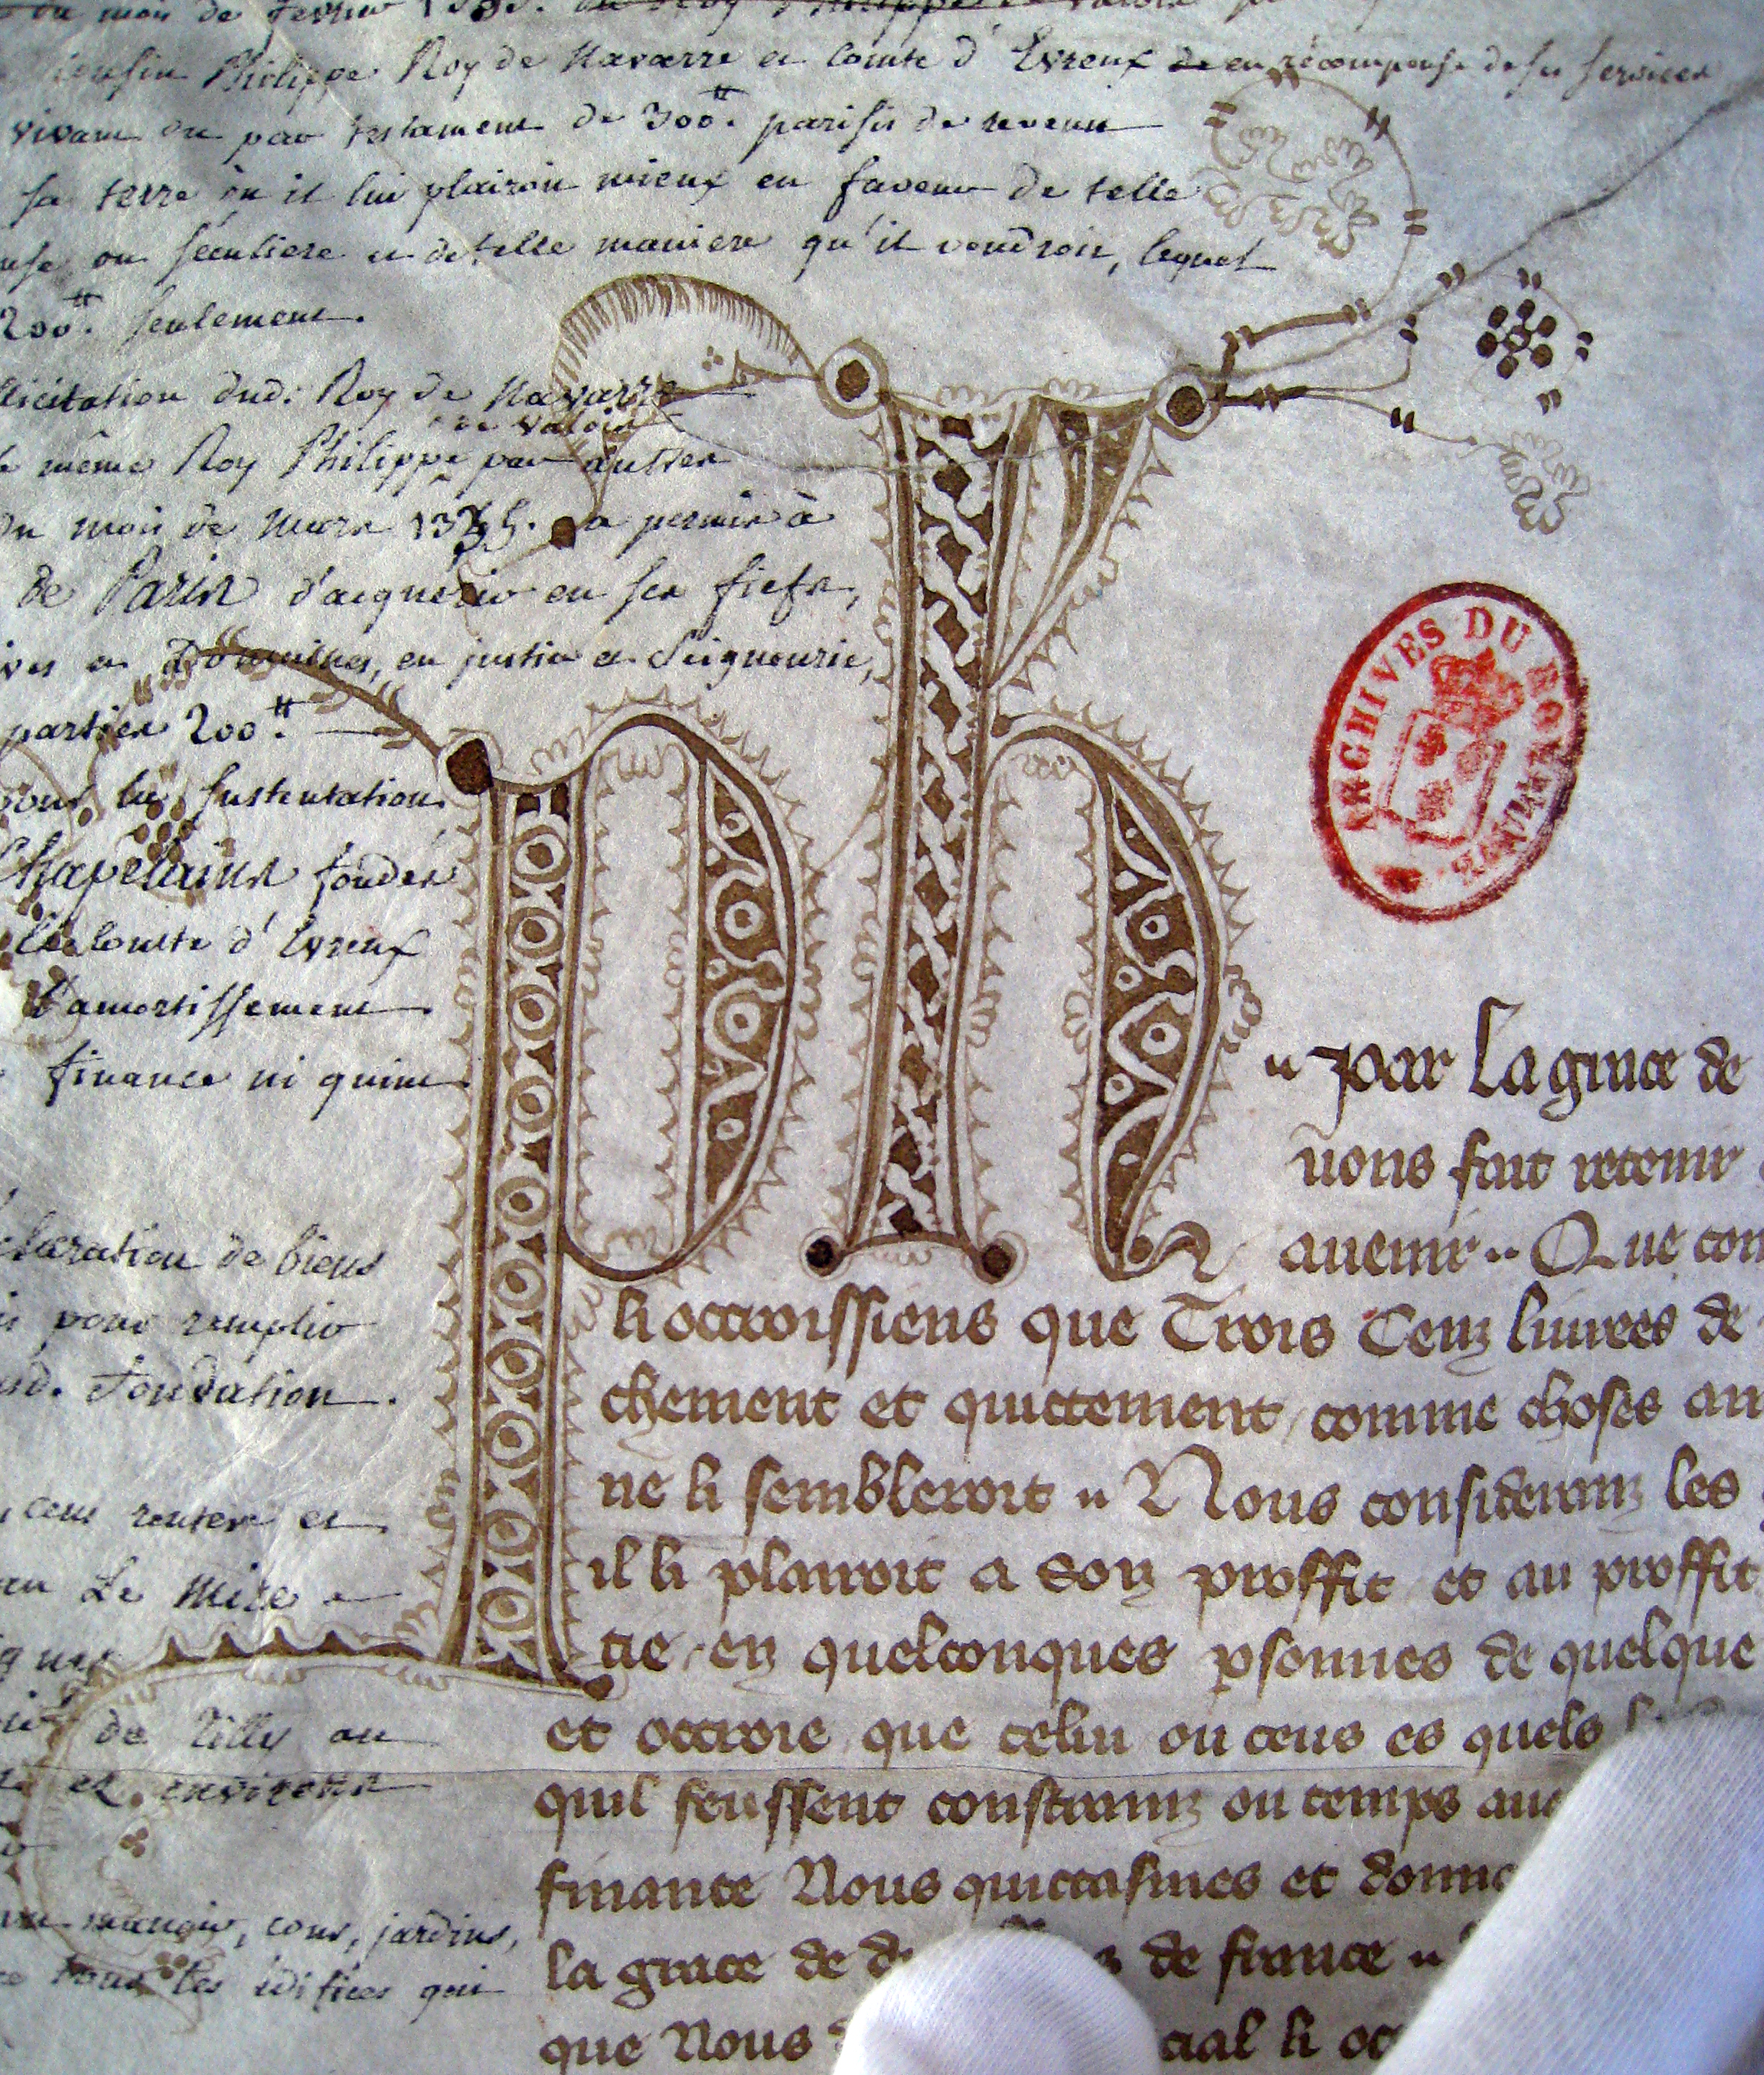 du mois de fevrier
cousin Philippe Roy de Navarre et Comte d'Evreux en récompense de ses services
vivant ou par testament de 300tt. parisis de revenu
sa terre où il lui plairoit mieux en faveur de telle
ou séculiere et de telle maniere qu'il voudroit, lequel
200tt. seulement.
licitation dud. Roy de Navarre
de valois
même Roy Philippe par autres
du mois de Mars 1335. a permis à
de Paris d'acquérir en ses fiefs,
et Domaines, en justice et Seigneurie,
partier 200tt.
pour la sustentation
Chapelains fondés
le Comte d'Evreux
l'amortissement
finance ni quint
claration de biens
pour remplir
d. Fondation.
cens rentes et
Le Mire
de Tilly ou
et environs
manoir, cour, jardins,
tous les édifices qui
Ph
par La grace de
nons fait retenir
auenir Que com
li octroissiens que Trois Cenz liurees de
chement et quictement comme choses am
ne li sembleroit Nous consideranz les
il li plairoit a Son proffit et au proffit
tie en quelconques psonnes de quelque
et octroie que celui ou ceus es quels
quil feussent constrainz ou temps aue
finance Nous quictasmes et donna
la grace de de france
que Nous cial li oc
ARCHIVES DU ROYAUME